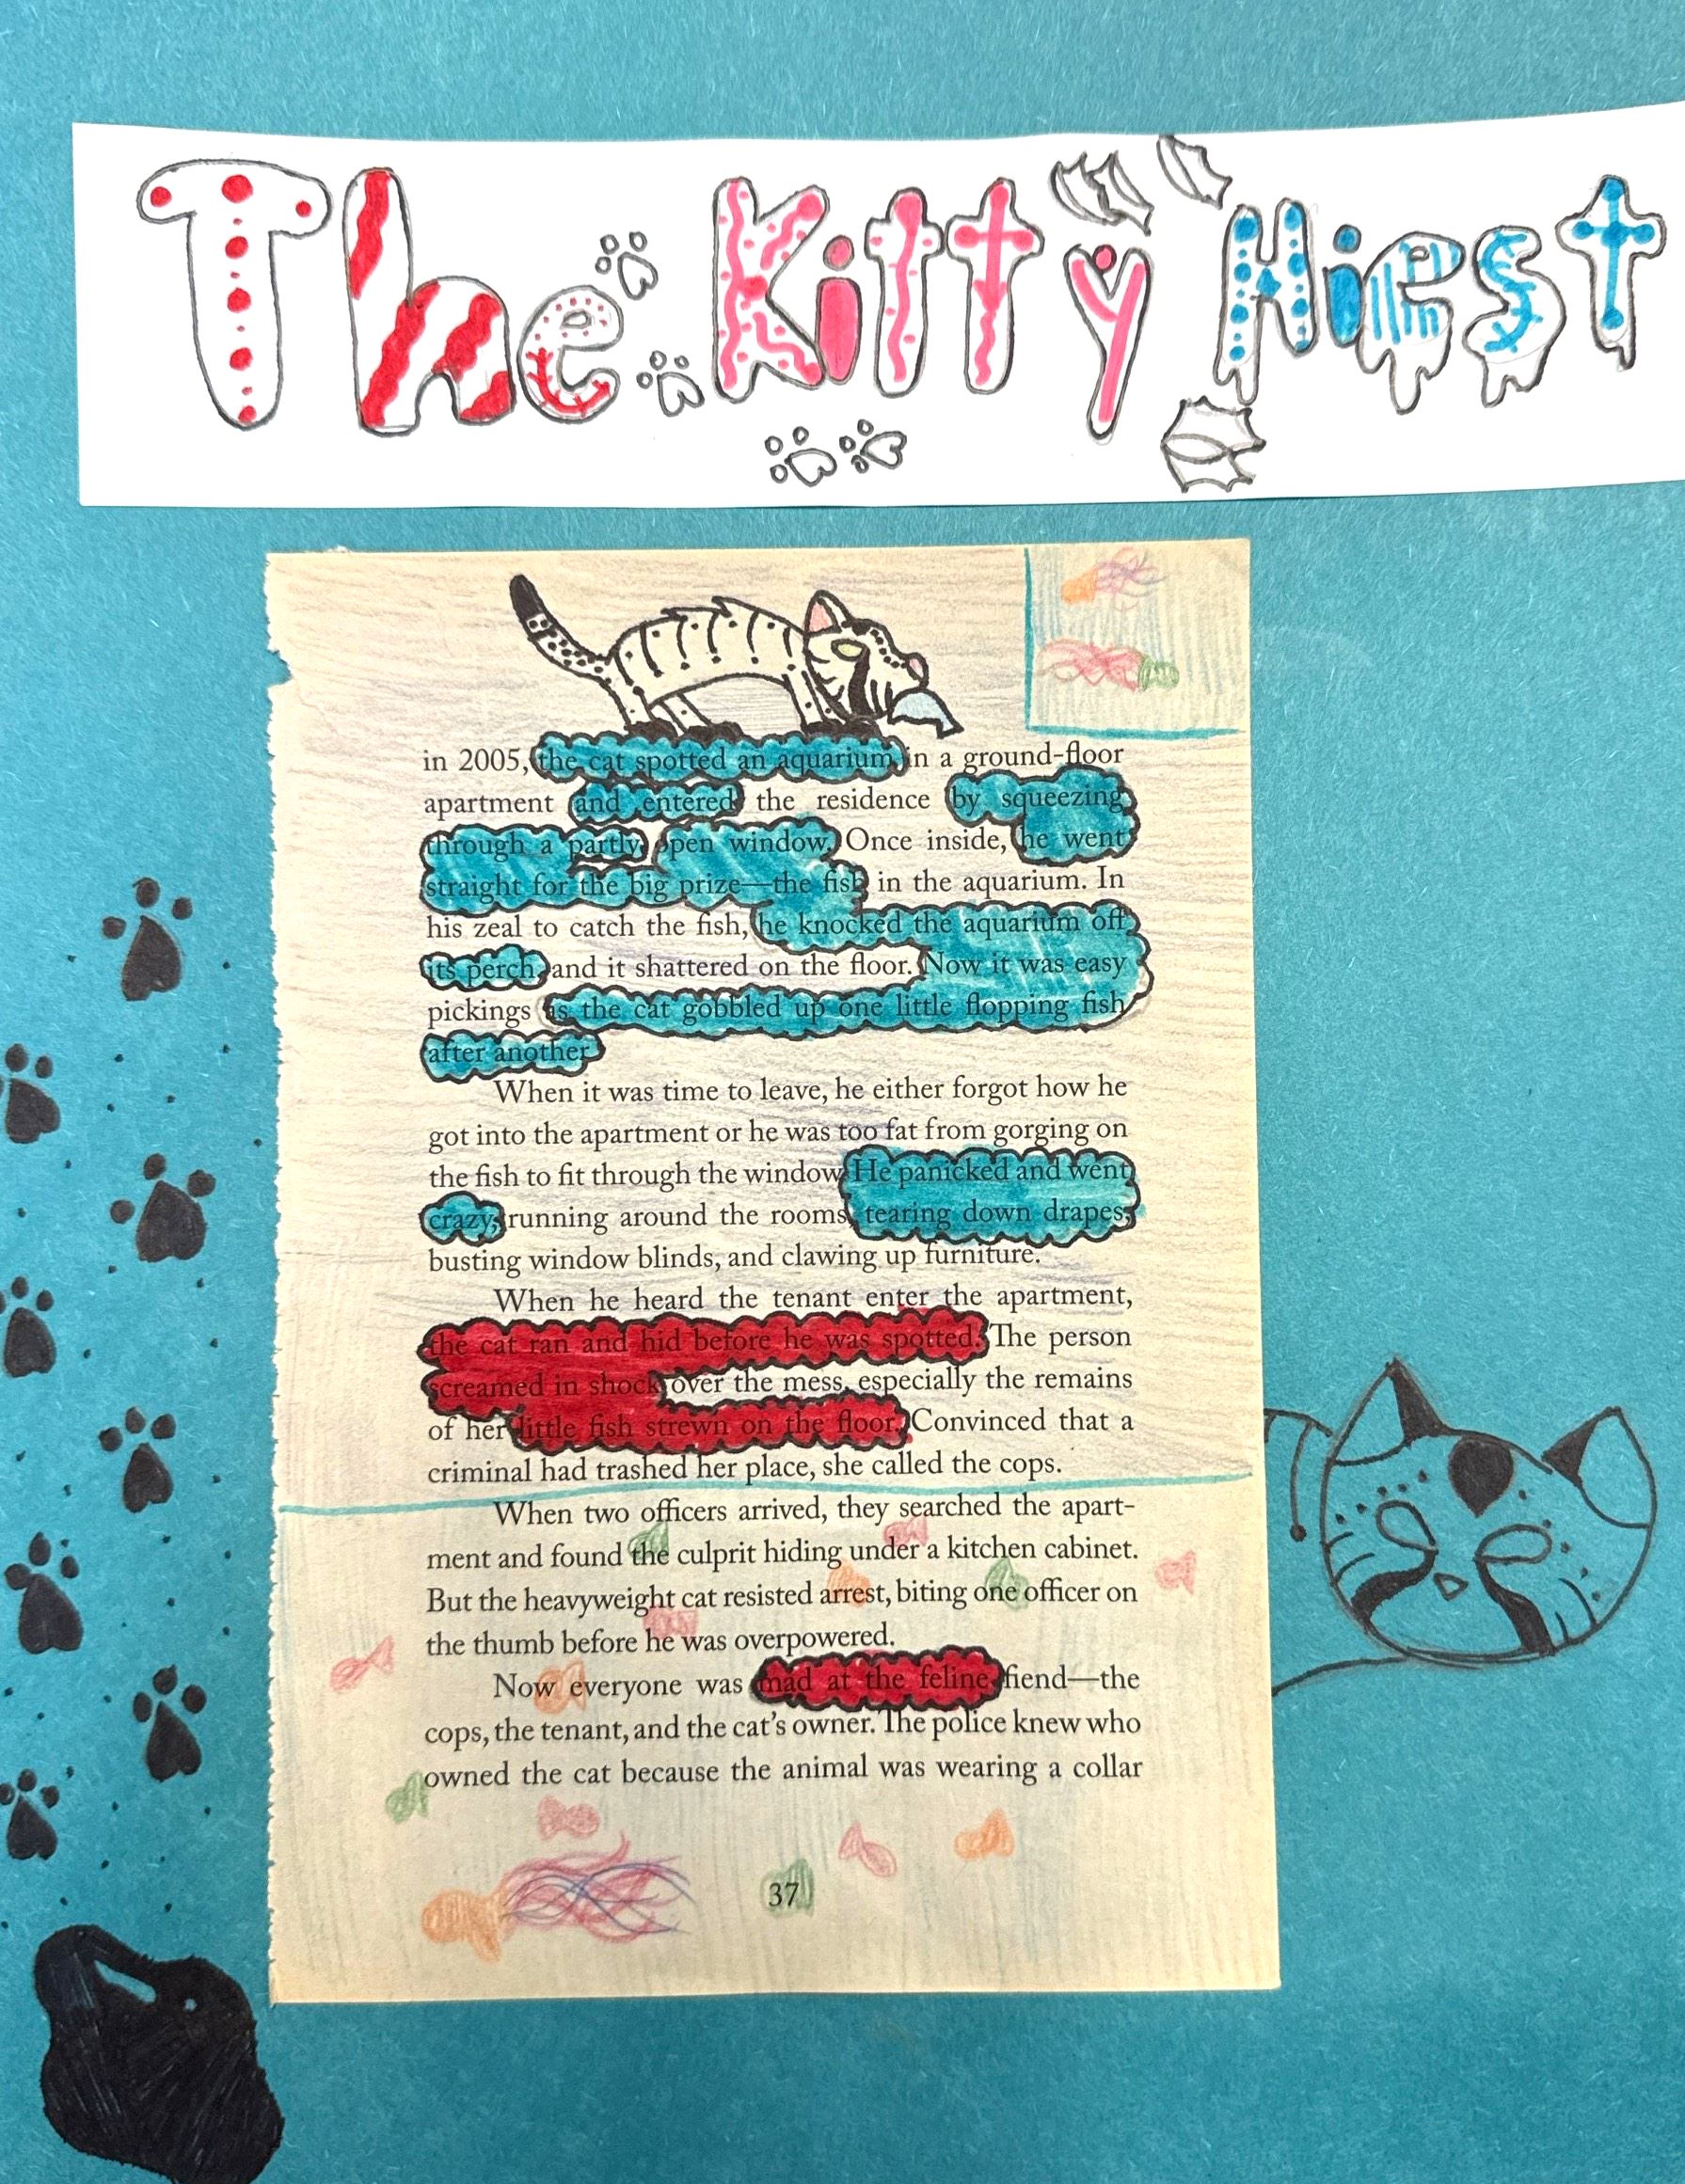 The Kitty Hiest
in 2005, the cat spotted an aquarium in a ground-floor
apartment and entered the residence by squeezing
through a partly open window. Once inside, he went
straight for the big prize—the fish in the aquarium. In
his zeal to catch the fish, he knocked the aquarium off
its perch, and it shattered on the floor. Now it was easy
pickings as the cat gobbled up one little flopping fish
after another.
When it was time to leave, he either forgot how he
got into the apartment or he was too fat from gorging on
the fish to fit through the window. He panicked and went
crazy, running around the rooms, tearing down drapes,
busting window blinds, and clawing up furniture.
When he heard the tenant enter the apartment,
the cat ran and hid before he was spotted. The person
screamed in shock over the mess, especially the remains
of her little fish strewn on the floor. Convinced that a
criminal had trashed her place, she called the cops.
When two officers arrived, they searched the apart-
ment and found the culprit hiding under a kitchen cabinet.
But the heavyweight cat resisted arrest, biting one officer on
the thumb before he was overpowered.
Now everyone was mad at the feline fiend—the
cops, the tenant, and the cat's owner. The police knew who
owned the cat because the animal was wearing a collar
37